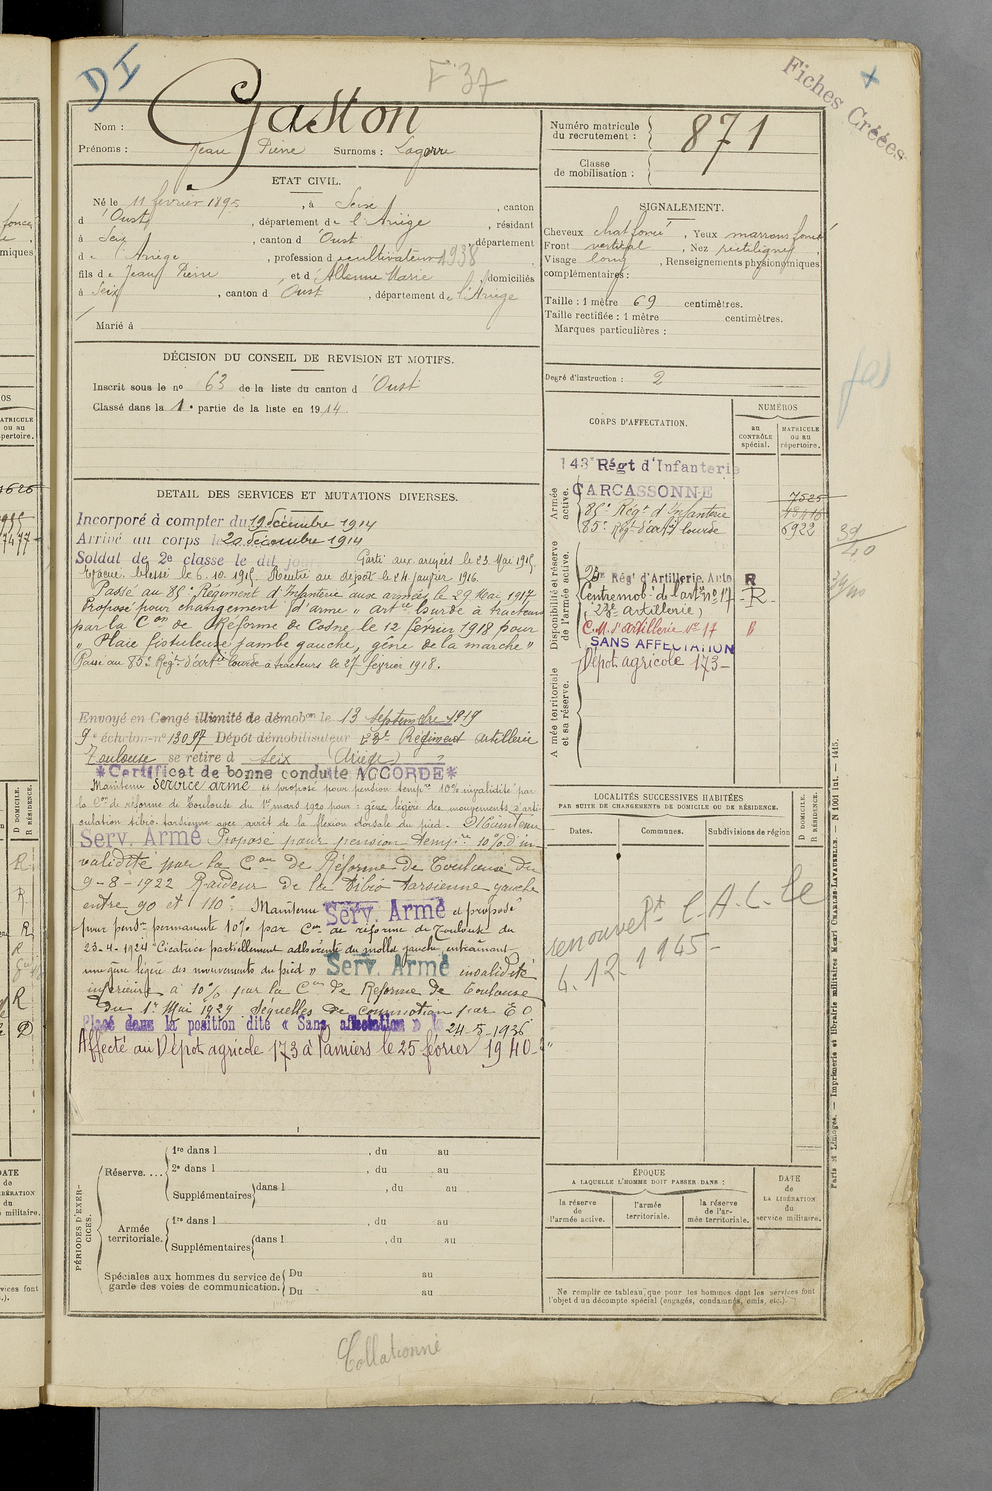 DI
F 37
Fiches Créées
Nom : Gaston
Prénoms : Jean Pierre Surnoms : Lagarre
Numéro matricule du recrutement : 871
Classe de mobilisation :
ETAT CIVIL.
Né le 11 février 1895, à Seix, canton
d'Oust, département de l'Ariège, résidant
à Seix, canton d'Oust, département
de l'Ariège, profession de cultivateur 1938
fils de Jean Pierre et d'Allenne Marie, domiciliés
à Seix, canton d'Oust, département de l'Ariège
Marié à
SIGNALEMENT.
Cheveux chat foncé, Yeux marrons foncé
Front vertical, Nez rectiligne
Visage long, Renseignements physionomiques
complémentaires :
Taille : 1 mètre 69 centimètres.
Taille rectifiée : 1 mètre centimètres.
Marques particulières :
DÉCISION DU CONSEIL DE REVISION ET MOTIFS.
Inscrit sous le no 63 de la liste du canton d'Oust
Classé dans la 1e partie de la liste en 1914.
Degré d'instruction : 2
CORPS D'AFFECTATION.
NUMÉROS
au CONTRÔLE spécial.
MATRICULE ou au répertoire.
Armée active.
143e Régt d'Infanterie
CARCASSONNE 7525
85e Rég. d'Infanterie
85e Rég. d'art. lourde 6922
39/40
Disponibilité et réserve de l'armée active.
Rég. d'Artillerie Auto R
Centre mob. d'art. no 17 R
(23e artillerie)
C.M. d'artillerie No 17
SANS AFFECTATION
Dépot agricole 173
Armée territoriale et sa réserve.
DETAIL DES SERVICES ET MUTATIONS DIVERSES.
Incorporé à compter du 19 décembre 1914
Arrivé au corps le 20 décembre 1914
Soldat de 2e classe le dit jour Parti aux armées le 23 Mai 1915
Evacué blessé le 6.10.1915. Rentré au dépôt le 14 janvier 1916.
Passé au 85e Régiment d'Infanterie aux armées le 29 Mai 1917
Proposé pour changement d'arme "artie lourde à tracteurs
par la Con de Réforme de Cosne le 12 février 1918 pour
"Plaie fistuleuse jambe gauche, gêne de la marche"
Passé au 85e Régt d'artie lourde à tracteurs le 27 février 1918.
Envoyé en Congé illimité de démobon le 13 septembre 1919
9e échelon no 13097 Dépôt démobilisateur 23e Régiment artillerie
Toulouse se retire à Seix (Ariège)
*Certificat de bonne conduite ACCORDÉ*
Maintenu service armé et proposé pour pension tempre 10% invalidité par
la Con de réforme de Toulouse du 1er mars 1920 pour : gêne légère des mouvements d'arti-
culation tibio-tarsienne avec arrêt de la flexion dorsale du pied. Maintenu
Serv. Armé Proposé pour pension tempre 10% d'in
validité par la Con de Réforme de Toulouse du
9-8-1922 Raideur de la tibio tarsienne gauche
entre 90 et 110°. Maintenu Serv. Armé et proposé
pour pension permanente 10% par Con de réforme de Toulouse du
23-4-1924 "Cicatrice partiellement adhérente du mollet gauche, entraînant
une gêne légère des mouvements du pied" Serv. Armé invalidité
inférieure à 10% par la Con de Réforme de Toulouse
du 1er Mai 1929. Séquelles de commotion par E O
Placé dans la position dite « Sans affectation » le 24-5-1936
Affecté au Dépot agricole 173 à Pamiers le 25 février 1940
LOCALITÉS SUCCESSIVES HABITÉES
PAR SUITE DE CHANGEMENTS DE DOMICILE OU DE RÉSIDENCE.
Dates. Communes. Subdivisions de région
D DOMICILE.
R RÉSIDENCE.
renouvelt C.A.C. le
4.12.1945
PÉRIODES D'EXERCICES.
Réserve.... 1re dans l , du au
2e dans l , du au
Supplémentaires dans l , du au
Armée territoriale. 1re dans l , du au
Supplémentaires dans l , du au
Spéciales aux hommes du service de garde des voies de communication. Du au
Du au
ÉPOQUE
A LAQUELLE L'HOMME DOIT PASSER DANS :
la réserve de l'armée active.
l'armée territoriale.
la réserve de l'armée territoriale.
DATE de LA LIBÉRATION du service militaire.
Ne remplir ce tableau que pour les hommes dont les services font
l'objet d'un décompte spécial (engagés, condamnés, omis, etc.).
Paris et Limoges. — Imprimerie et librairie militaires Henri CHARLES-LAVAUZELLE. — N 1001 int. — 1415.
Collationné